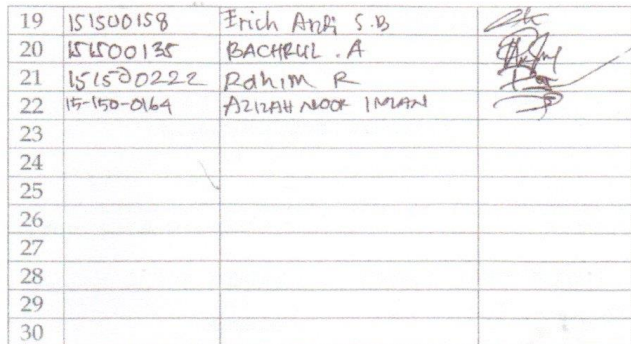 19 151500158 Erich Andi S.B
20 151500135 BACHRUL . A
21 151500222 Rahim R
22 15-150-0164 AZIZAH NOOR INTAN
23
24
25
26
27
28
29
30